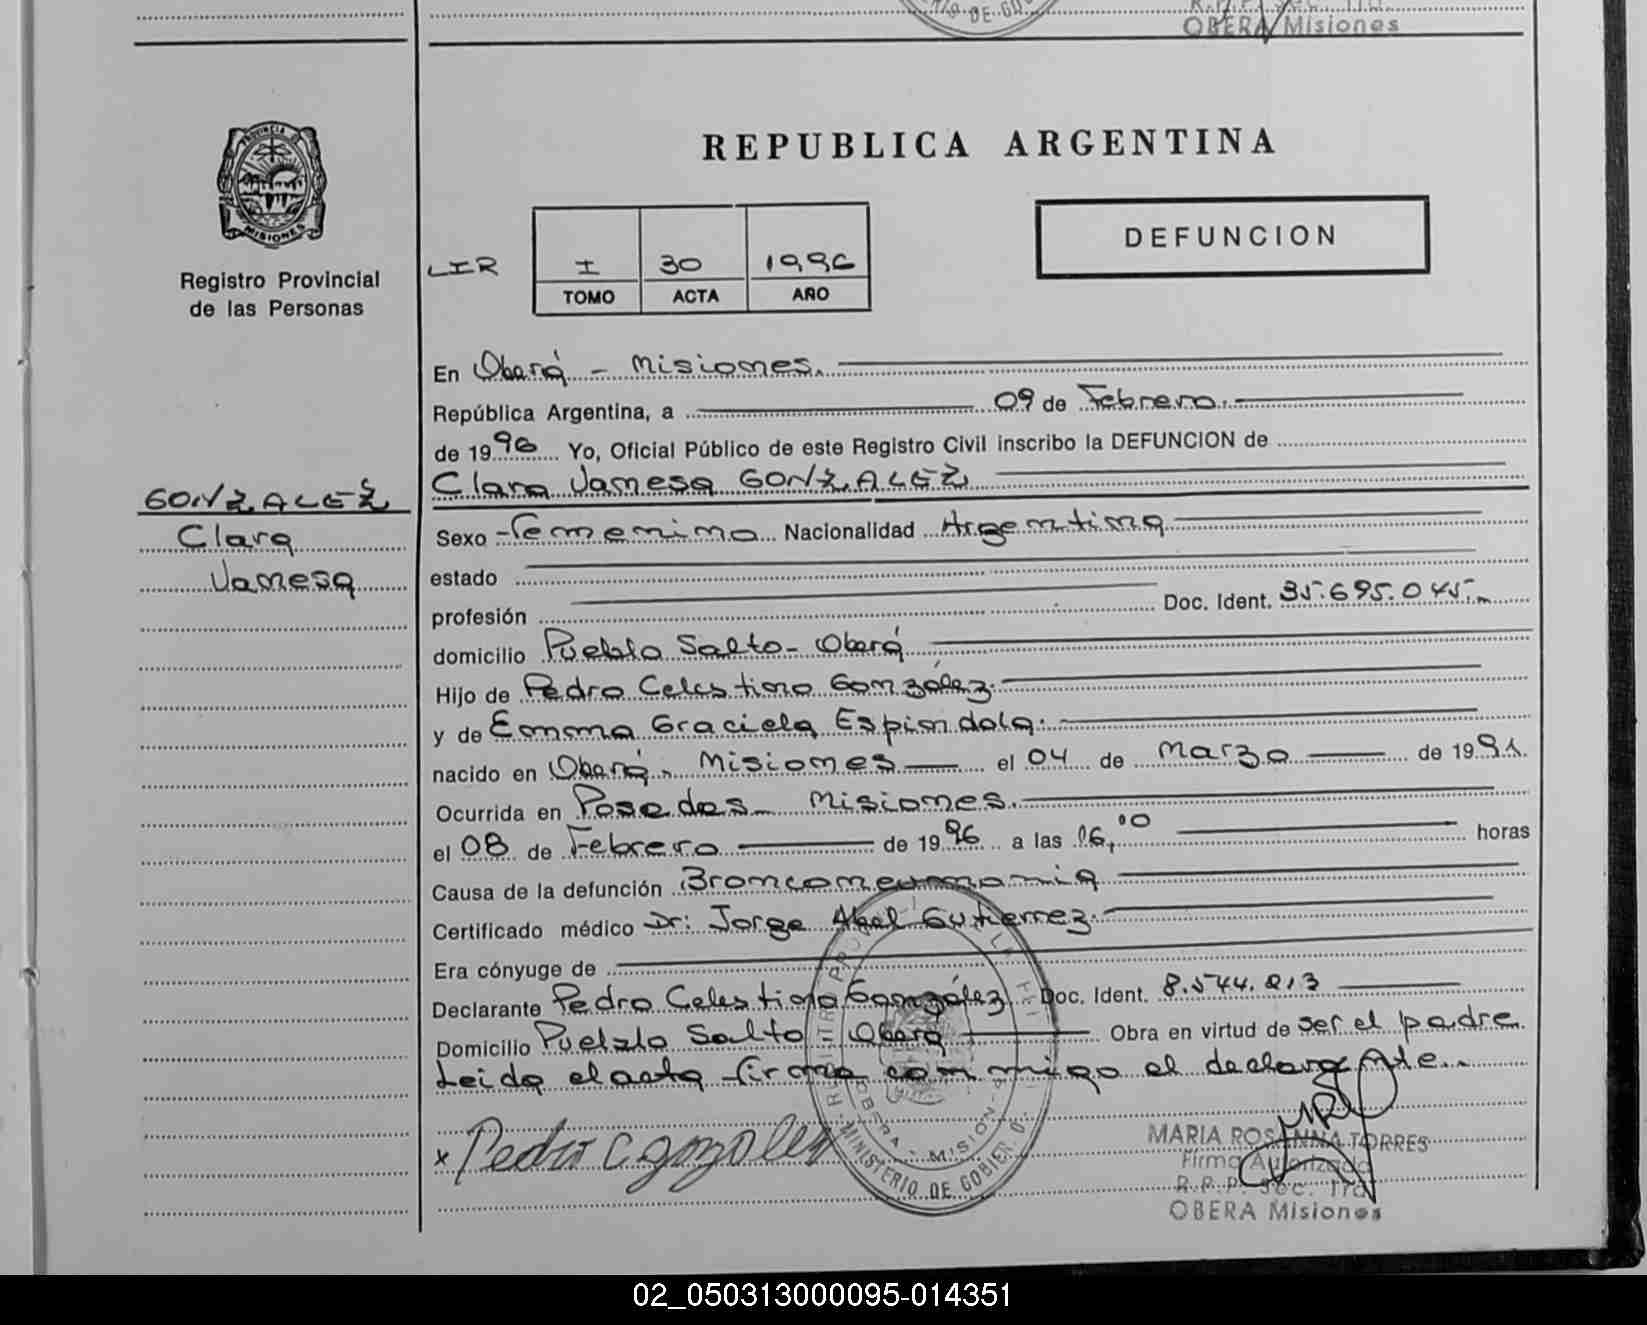 MINISTERIO DE GOB
R.P.P. Sec. 1ra.
OBERA Misiones
PROVINCIA DE
MISIONES
Registro Provincial
de las Personas
REPUBLICA ARGENTINA
DEFUNCION
LIR
I 30 1996
TOMO ACTA AÑO
En Oberá - Misiones.
República Argentina, a 09 de Febrero.
de 1996 Yo, Oficial Público de este Registro Civil inscribo la DEFUNCION de
Clara Vanesa GONZALEZ
GONZALEZ
Clara
Vanesa
Sexo Femenino Nacionalidad Argentina
estado
profesión Doc. Ident. 35.695.045.-
domicilio Pueblo Salto - Oberá
Hijo de Pedro Celestino González.
y de Emma Graciela Espindola.
nacido en Oberá, Misiones el 04 de Marzo de 1991.
Ocurrida en Posadas - Misiones.
el 08 de Febrero de 1996 a las 06,00 horas
Causa de la defunción Bronconeumonia
Certificado médico Dr: Jorge Abel Gutierrez.
Era cónyuge de
Declarante Pedro Celestino González Doc. Ident. 8.544.213
Domicilio Pueblo Salto - Oberá Obra en virtud de ser el padre
Leida el acta firma conmigo el declarante.
x Pedro C gonzalez
MINISTERIO DE GOBIER
OBERA - MISION
MARIA ROSANNA TORRES
Firma Autorizada
R.P.P. Sec. 1ra.
OBERA Misiones
02_050313000095-014351